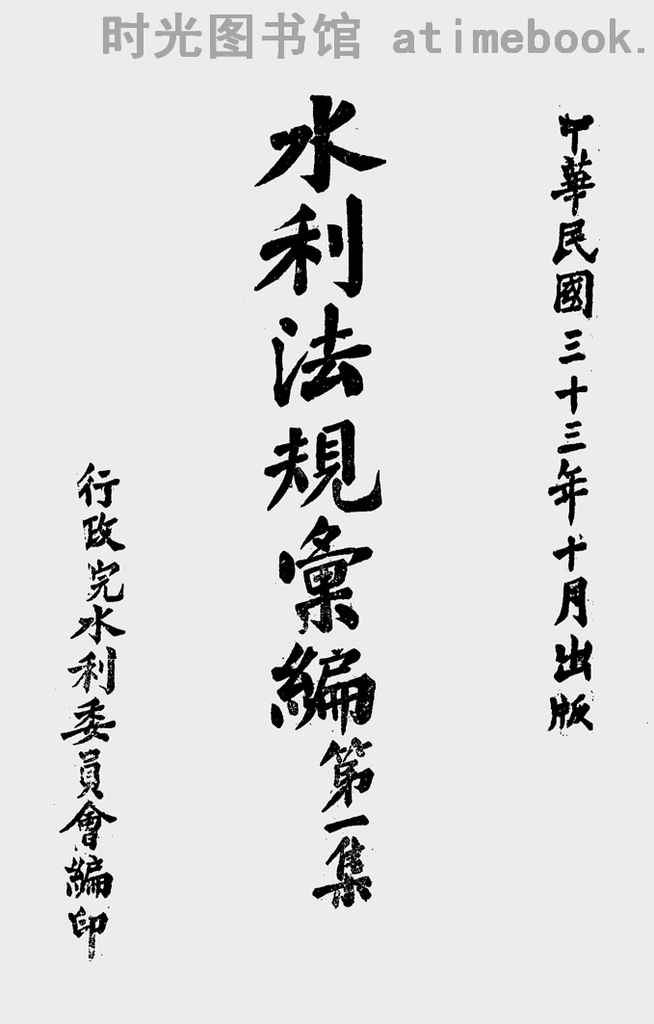 时光图书馆 atimebook.
中華民國三十三年十月出版
水利法規彙編第一集
行政院水利委員會編印